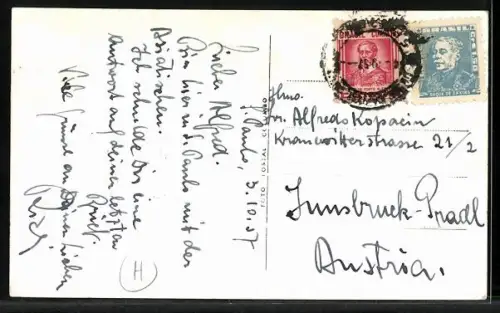 S. Paulo, 3.10.57
Lieber Alfred.
Bin hier in S. Paulo mit der
Ich schulde Dir eine
Antwort auf deinen letzten
Brief.
Viele Grüsse an Deinen lieben
H
FOTO POSTAL
BRASIL
Ilmo.
Sr. Alfredo Kopacin
Kranewitterstrasse 21/2
Innsbruck-Pradl
Austria.